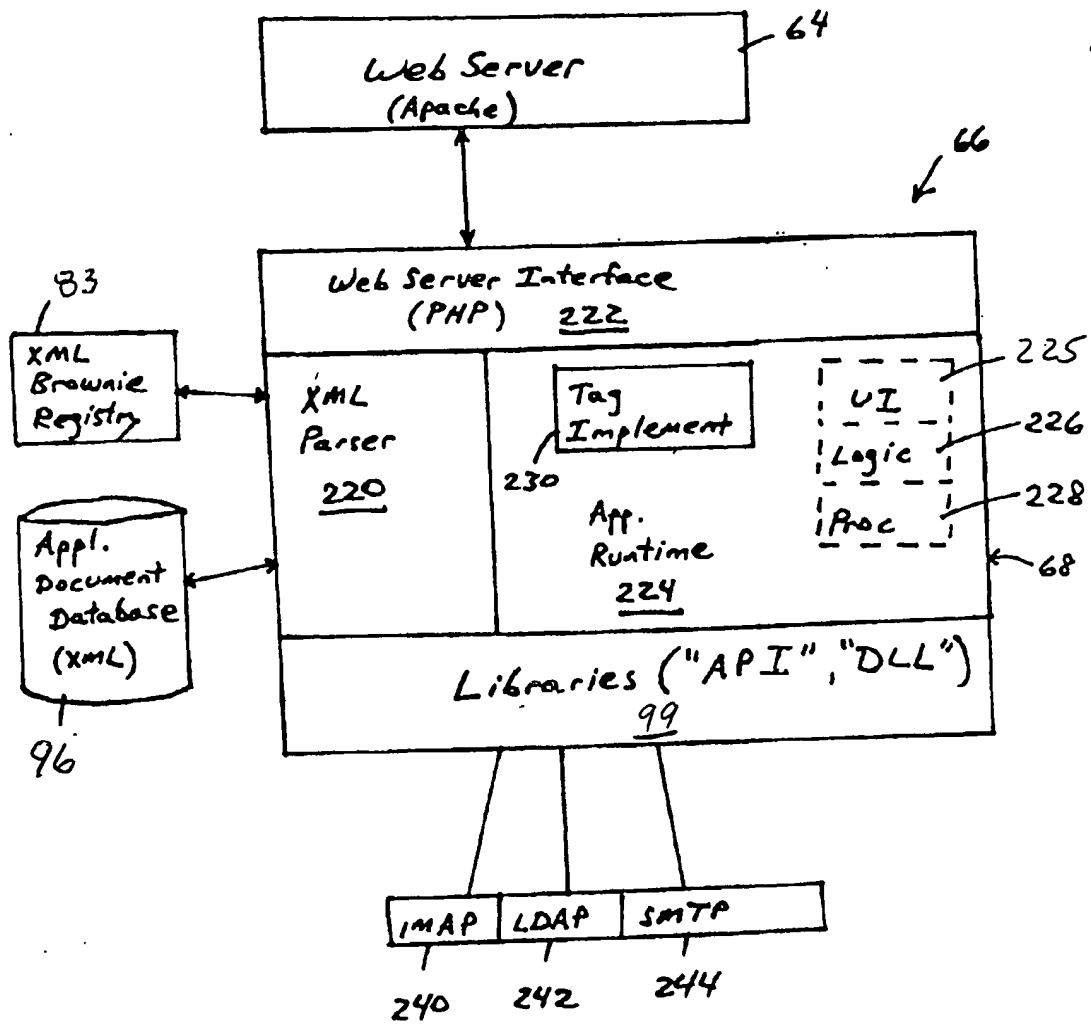 64
Web Server
(Apache)
66
Web Server Interface
(PHP) 222
83
XML
Brownie
Registry
XML
Parser
220
Tag
Implement
230
App.
Runtime
224
UI
Logic
Proc
225
226
228
68
Appl.
Document
Database
(XML)
96
Libraries ("API", "DLL")
99
IMAP
LDAP
SMTP
240
242
244